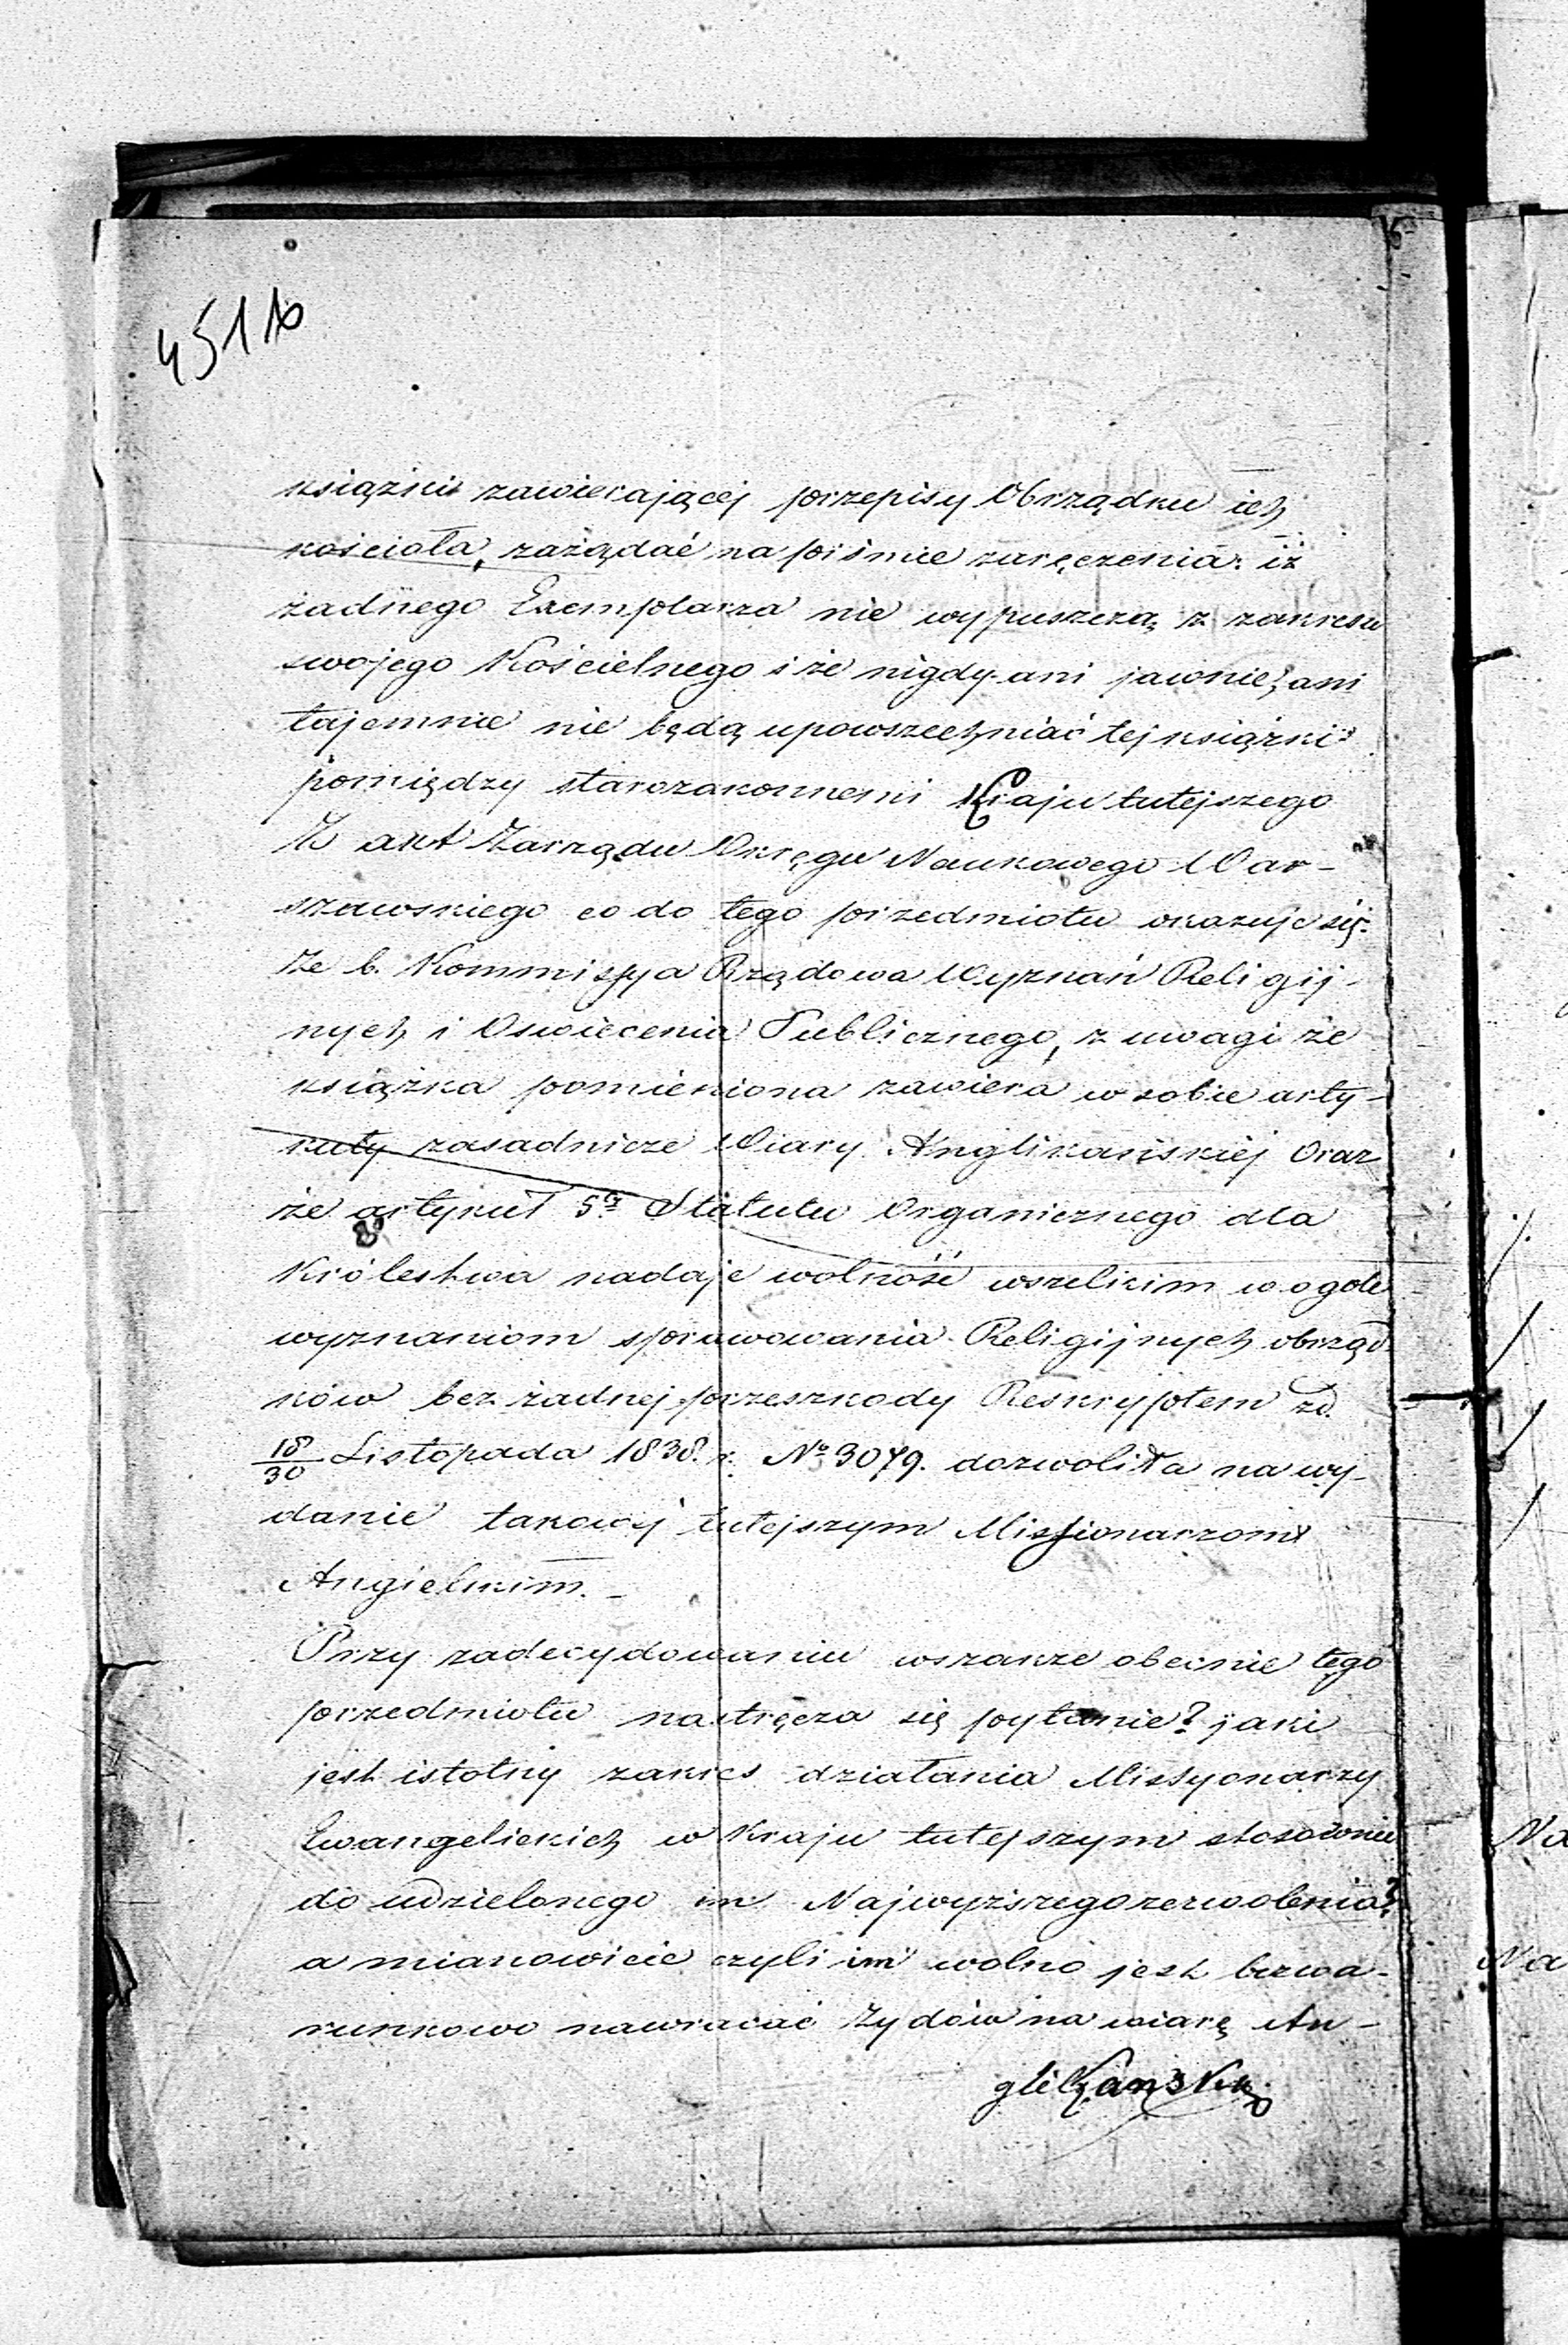 451 b
książki zawierającej przepisy Obrządku ich
kościoła, zażądać na piśmie zaręczenia: iż
żadnego Exemplarza nie wypuszczą z zakresu
swojego Kościelnego i że nigdy ani jawnie, ani
tajemnie nie będą upowszechniać tej książki
pomiędzy starozakonnemi Kraju tutejszego
Z akt Zarządu Okręgu Naukowego War-
szawskiego co do tego przedmiotu okazuje się:
że b. Kommissya Rządowa Wyznań Religij-
nych i Oswiecenia Publicznego, z uwagi że
książka pomieniona zawiera w sobie arty-
kuły zasadnicze Wiary Anglikańskiéj Oraz
że artykuł 5ty Statutu Organicznego dla
Królestwa nadaje wolność wszelkim w ogóle
wyznaniom sprawowania Religijnych obrząd
ków bez żadnej przeszkody Reskryptem zd.
18/30 Listopada 1838. r. No 3079. dozwoliła na wy-
danie takowéj tutejszym Missionarzom
Angielskim. -
Przy zadecydowaniu wszakże obecnie tego
przedmiotu nastręcza się pytanie? jaki
jest istotny zakres działania Missyonarzy
Ewangelickich w Kraju tutejszym stosownie
do udzielonego im Najwyższego zezwolenia?
a mianowicie czyli im wolno jest bezwa-
runkowo nawracać Żydów na wiarę An-
glikańską
Na
Na